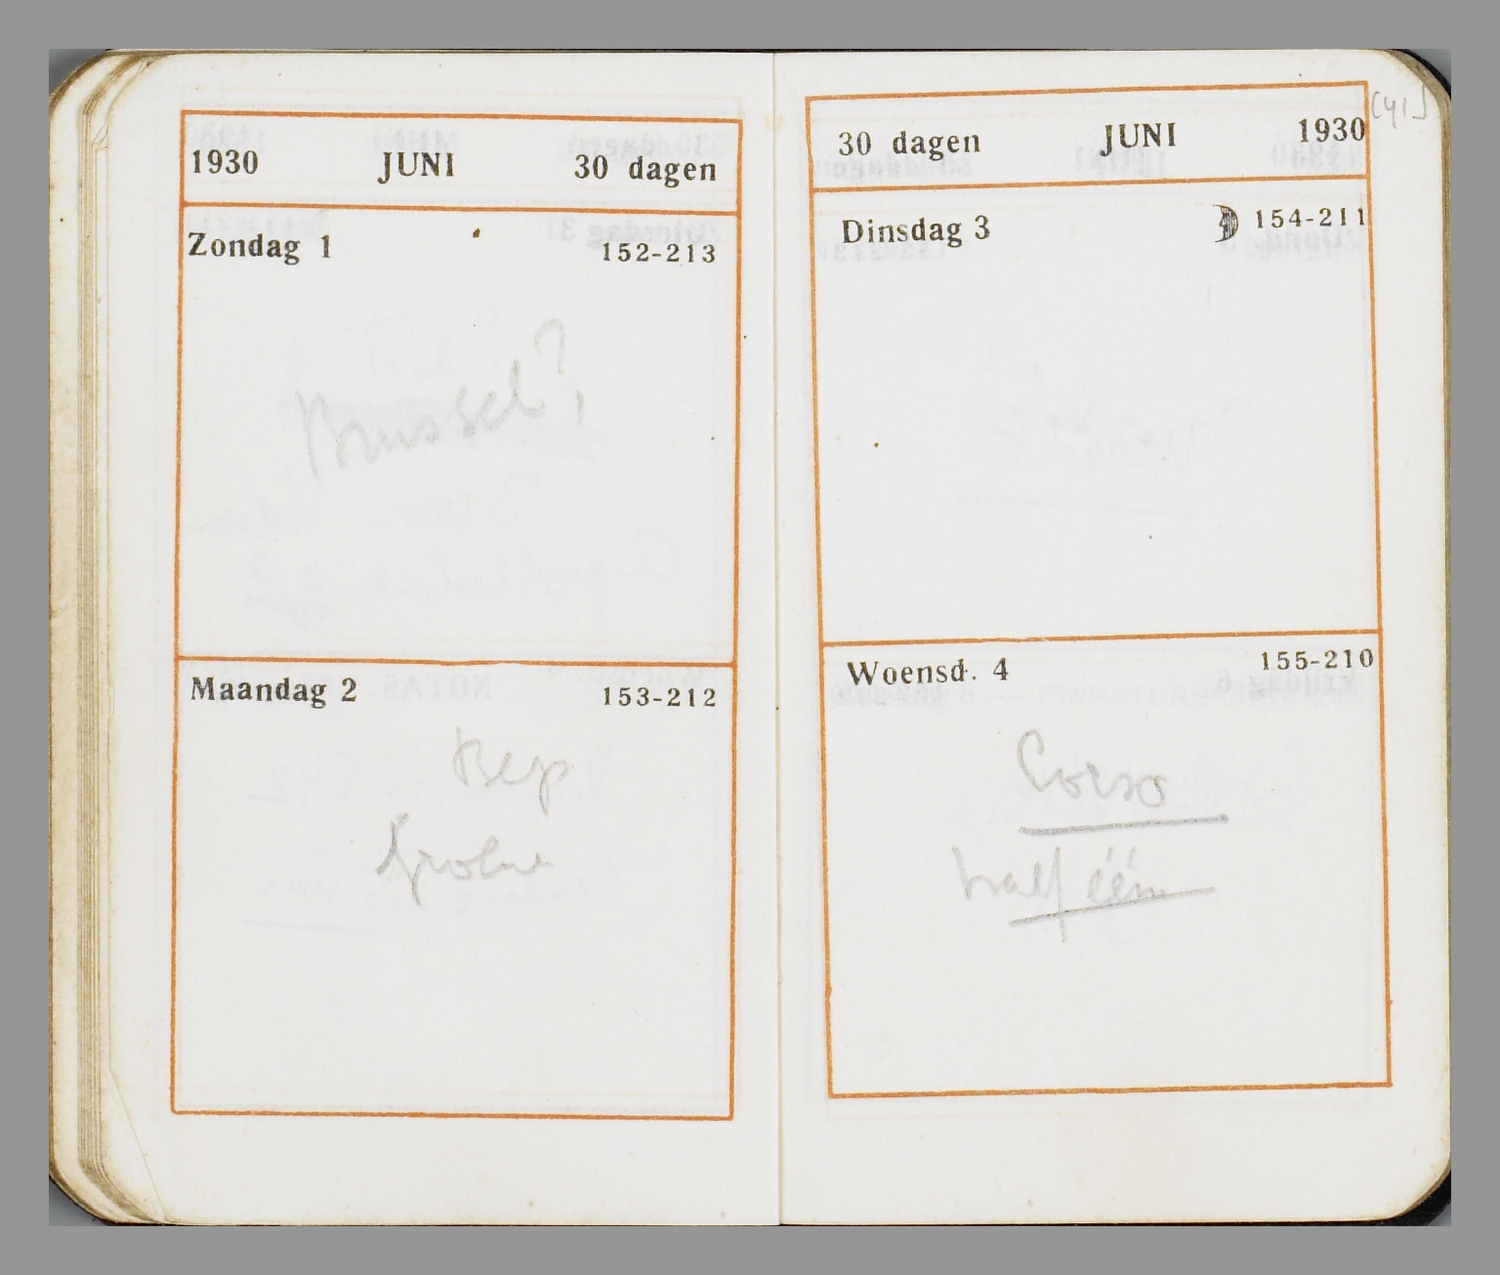 1930 JUNI 30 dagen
Zondag 1 152-213
Brussel?
Maandag 2 153-212
Bep
30 dagen JUNI 1930
[41]
Dinsdag 3 154-211
Woensd. 4 155-210
Corso
half één